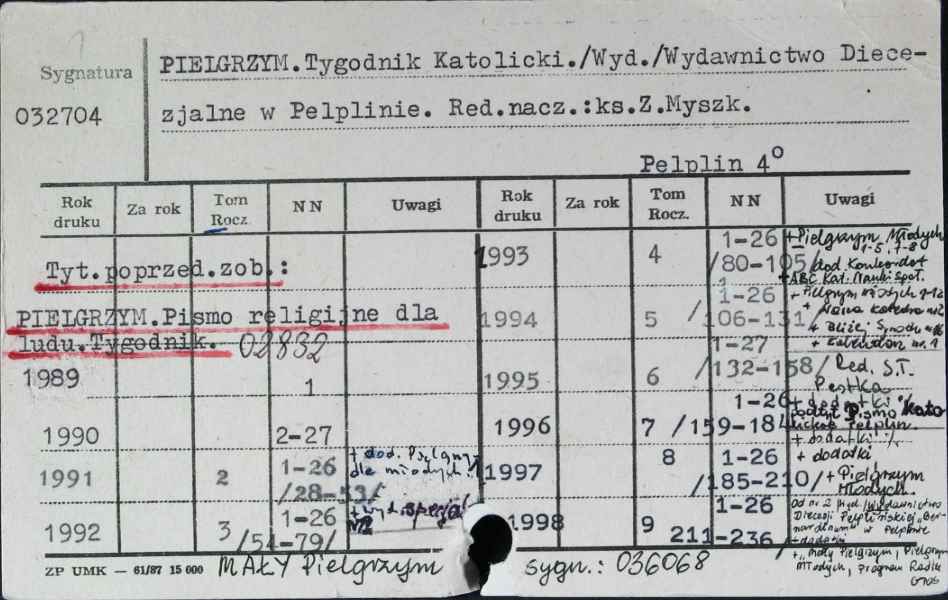 Sygnatura
032704
PIELGRZYM.Tygodnik Katolicki./Wyd./Wydawnictwo Diece-
zjalne w Pelplinie. Red.nacz.:ks.Z.Myszk.
Pelplin 4°
Rok druku Za rok Tom Rocz. NN Uwagi Rok druku Za rok Tom Rocz. NN Uwagi
Tyt.poprzed.zob.:
PIELGRZYM.Pismo religijne dla
ludu.Tygodnik. 02832
1989 1
1990 2-27
1991 2 1-26 + dod. Pielgrzym
/28-53/ dla młodych
1992 3 1-26 + wyd. specjal
/54-79/
1993 4 1-26 + Pielgrzym Młodych
1-5, 7-8
/80-105 /dod Konkordat
+ABC Kat. Nauki Społ.
1994 5 1-26 + Pielgrzym młodych
/106-131/ + Nasza Katedra
+ Bliżej Synodu
+ Kalendarz nr 1
1995 6 1-27
/132-158/ Red. S.T.
Pestka
1996 7 1-26 + dodatki
/159-184 podtyt Pismo Kato
lickie Pelplin.
+ dodatki
1997 8 1-26 + dodatki
/185-210/ + Pielgrzym
Młodych.
1998 9 1-26 Od nr 2 Wydawnictwo
211-236/ Diecezji Pelplińskiej "Ber-
nardinum" w Pelplinie
+ dodatki
+ "Mały Pielgrzym, Pielgrzym
Młodych, program Radia
Głos
ZP UMK — 61/87 15 000 MAŁY Pielgrzym sygn.: 036068